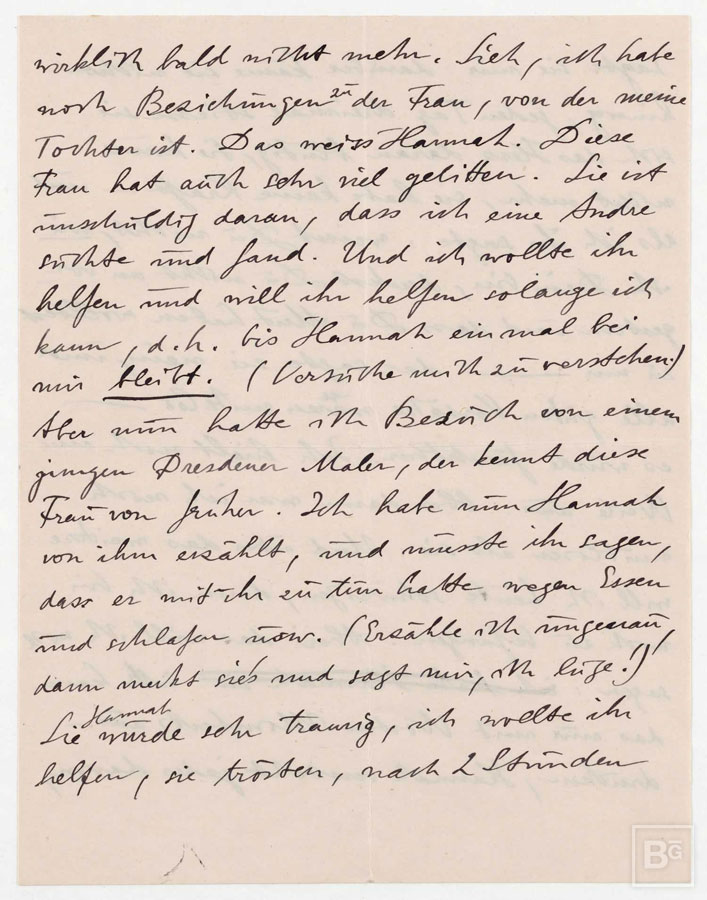 wirklich bald nicht mehr. Sieh, ich habe
noch Beziehungen zu der Frau, von der meine
Tochter ist. Das weiss Hannah. Diese
Frau hat auch sehr viel gelitten. Sie ist
unschuldig daran, dass ich eine Andre
suchte und fand. Und ich wollte ihr
helfen und will ihr helfen solange ich
kann, d.h. bis Hannah einmal bei
mir bleibt. (Versuche mich zu verstehen.)
Aber nun hatte ich Besuch von einem
jungen Dresdener Maler, der kennt diese
Frau von früher. Ich habe nun Hannah
von ihm erzählt, und musste ihr sagen,
dass er mit ihr zu tun hatte wegen Essen
und schlafen usw. (Erzähle ich ungenau,
dann merkt sie's und sagt mir, ich lüge!)
Sie Hannah wurde sehr traurig, ich wollte ihr
helfen, sie trösten, nach 2 Stunden
BG